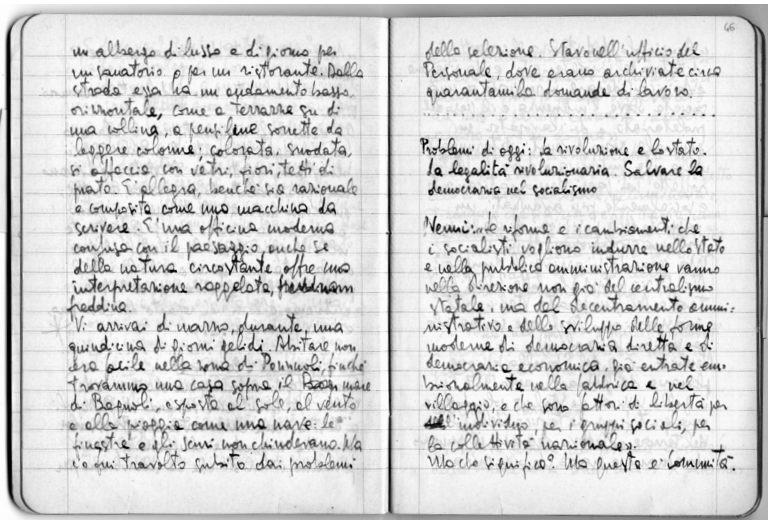 un albergo di lusso e di giorno per
un sanatorio o per un ristorante. Dalla
strada essa ha un andamento basso,
orizzontale, come a terrazze su di
una collina, a pensiline sorrette da
leggere colonne: colorata, snodata,
si affaccia con vetri, fiori, tetti di
prato. E' allegra, benché sia razionale
e composita come una macchina da
scrivere. E' una officina moderna
confusa con il paesaggio, anche se
della natura circostante offre una
interpretazione raggelata,
freddina.
Vi arrivai di marzo, durante una
quindicina di giorni gelidi. Abitare non
era facile nella zona di Pozzuoli, finché
trovammo una casa sopra il mare
di Bagnoli, esposta al sole, al vento
e alla pioggia come una nave: le
finestre e gli scuri non chiudevano. Ma
io fui travolto subito dai problemi
66
della selezione. Stavo nell'ufficio del
Personale, dove erano archiviate circa
quarantamila domande di lavoro.
Problemi di oggi: la rivoluzione e lo stato.
La legalità rivoluzionaria. Salvare la
democrazia nel socialismo
Nenni: «le riforme e i cambiamenti che
i socialisti vogliono indurre nello stato
e nella pubblica amministrazione vanno
nella direzione non già del centralismo
statale, ma del decentramento ammi-
nistrativo e dello sviluppo delle forme
moderne di democrazia diretta e di
democrazia economica, già entrate em-
brionalmente nella fabbrica e nel
villaggio, e che sono fattori di libertà per
l'individuo, per i gruppi sociali, per
la collettività nazionale».
Ma che significa? Ma questa e' Comunità.